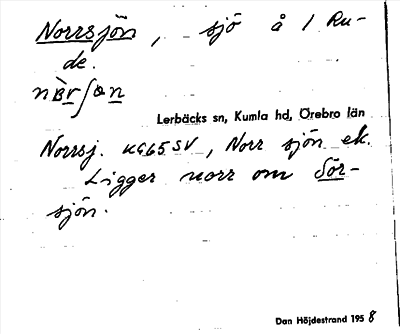 Norrsjön, sjö å 1 Ru-
de.
Lerbäcks sn, Kumla hd, Örebro län
Norrsj. KG65 SV, Norr sjön ek.
Ligger norr om Sör-
sjön.
Dan Höjdestrand 1958